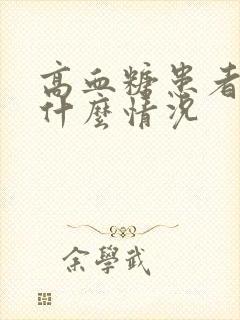 高血糖患者
什麼情況
余學武